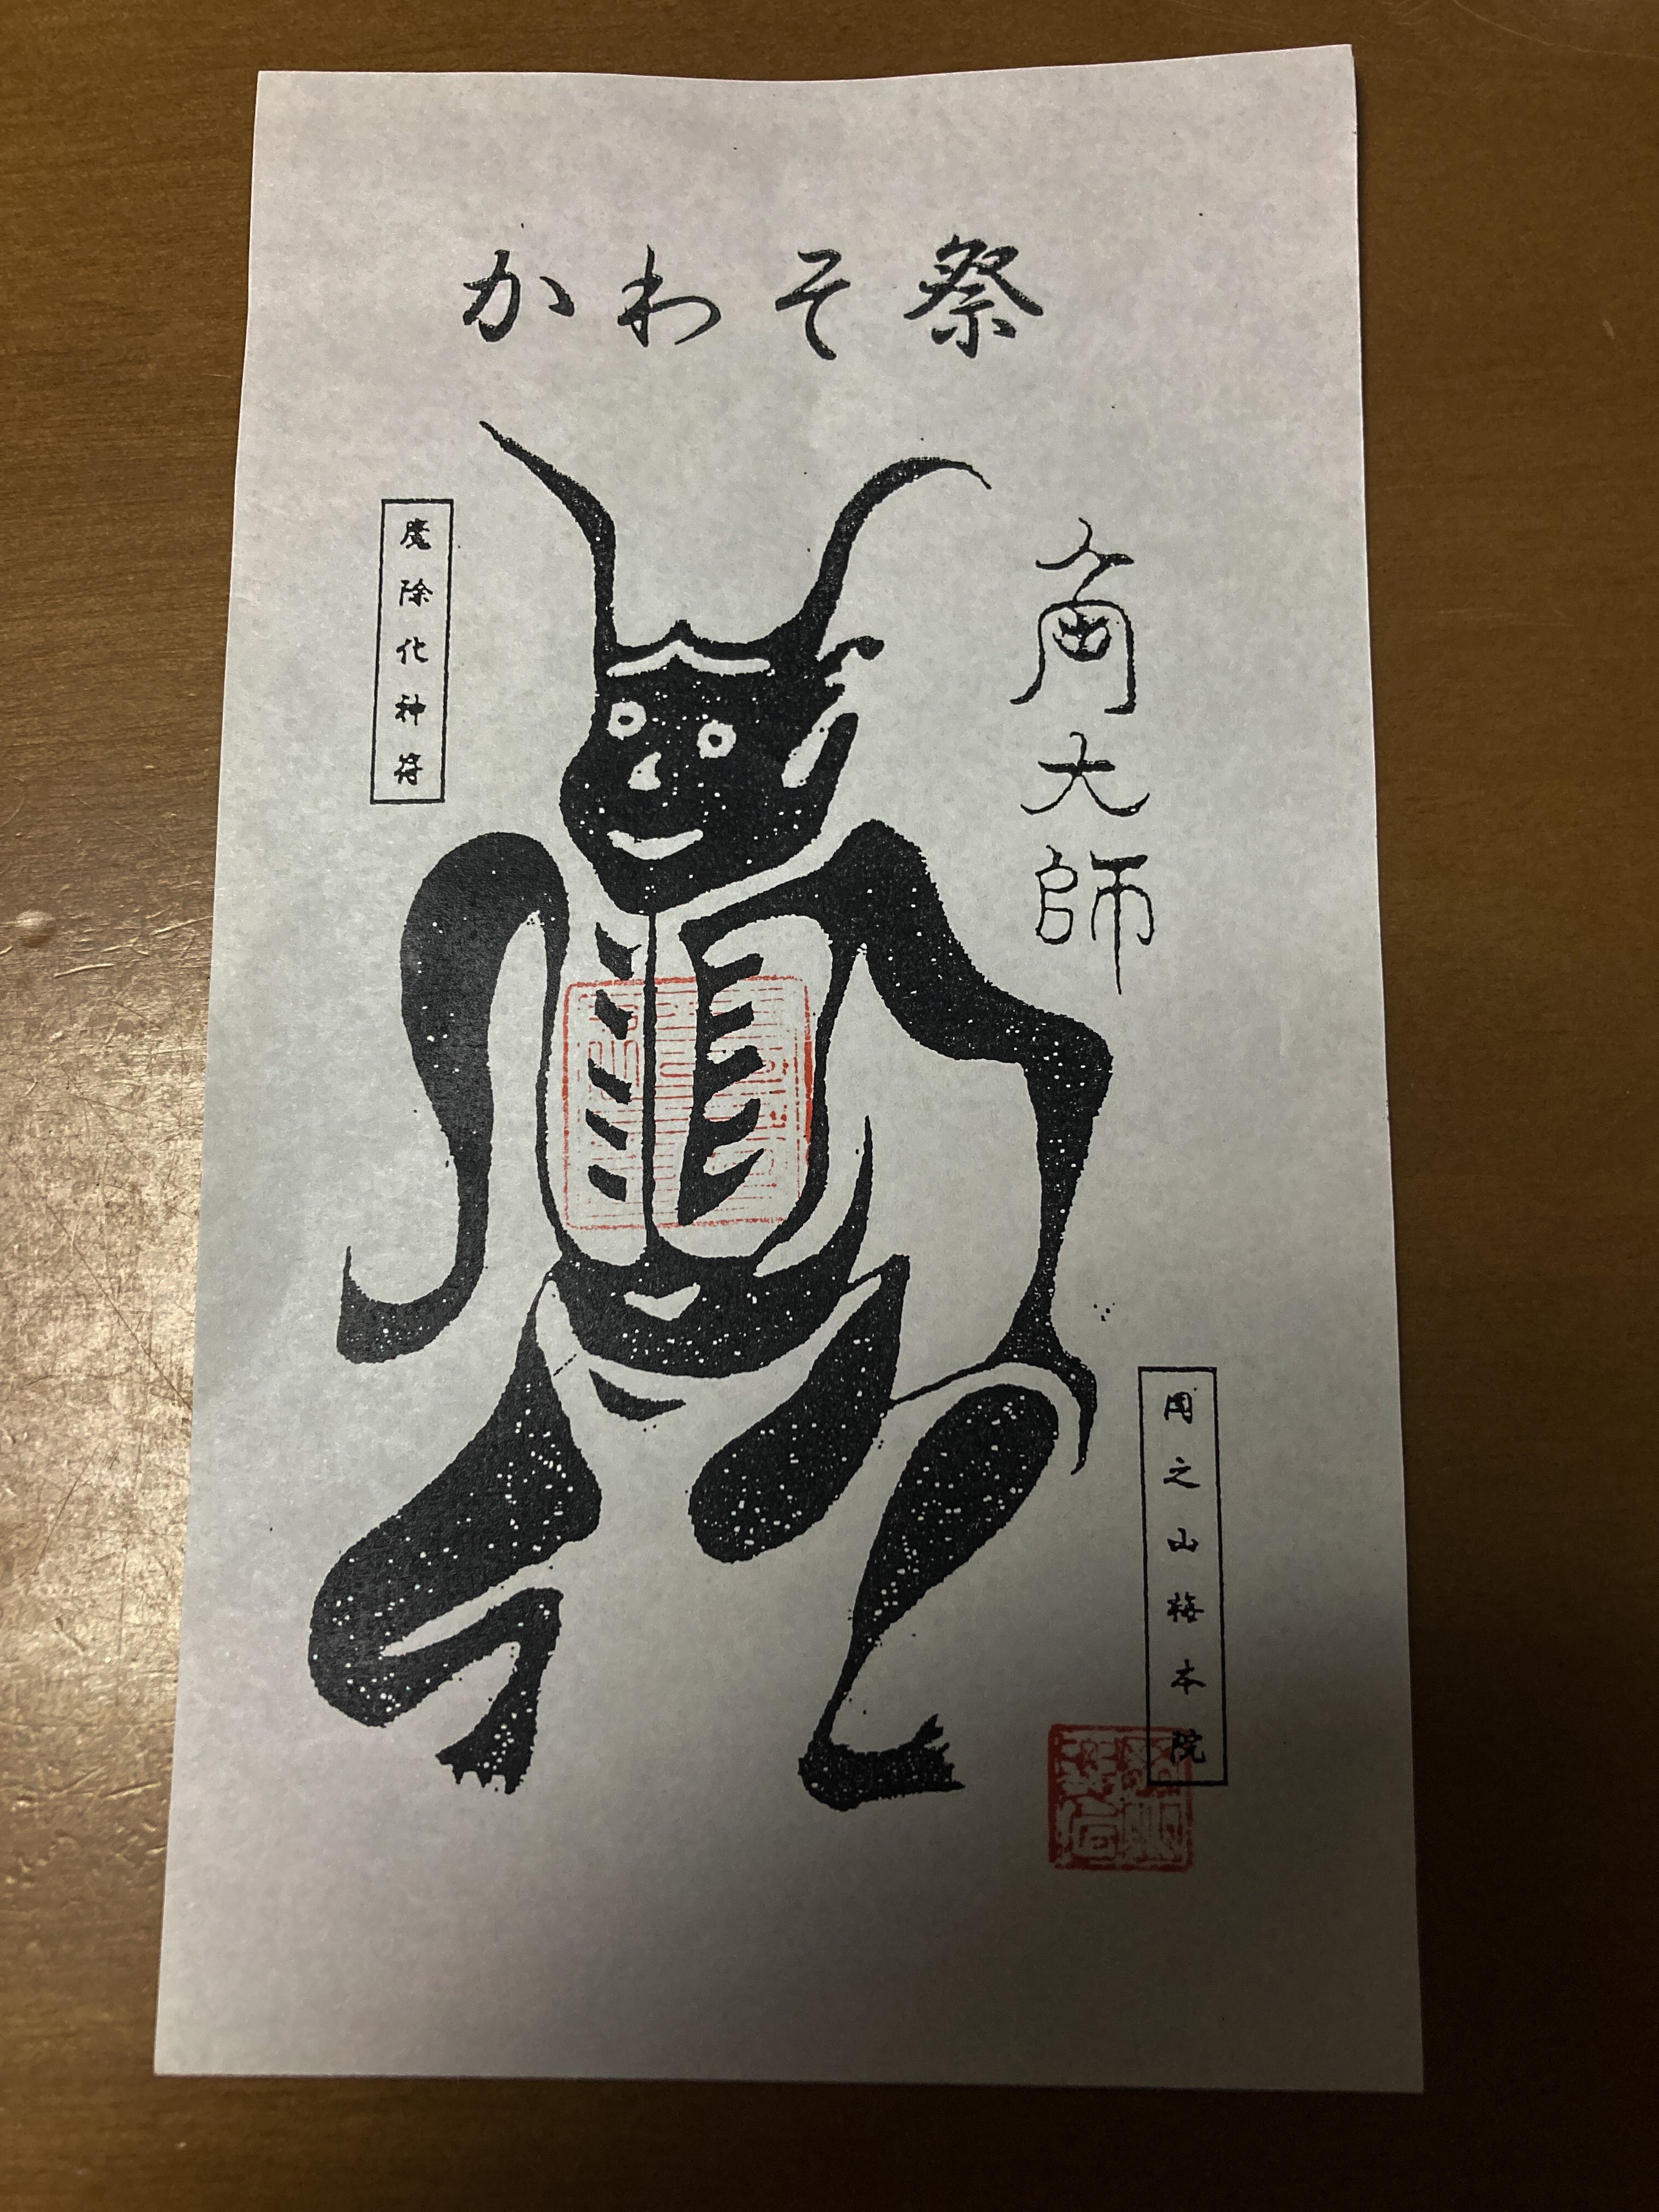 かわそ祭
角大師
魔除化神符
岡之山梅本院